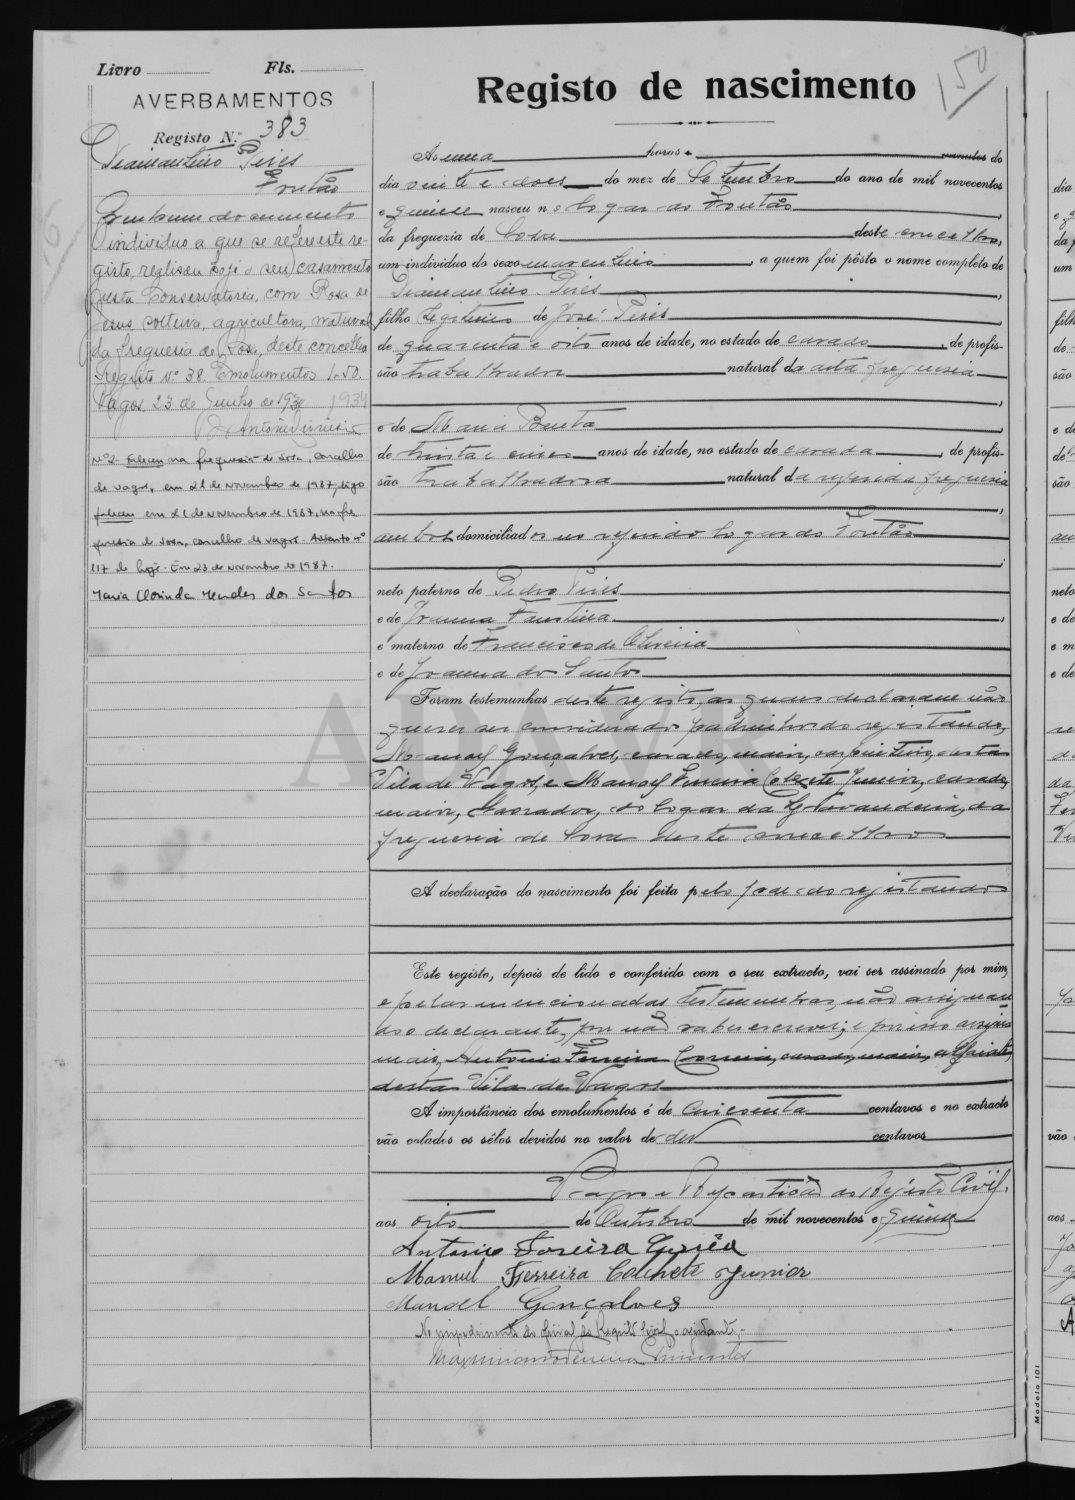 Livro Fls.
AVERBAMENTOS
Registo N.º 383
Diamantino Pires
Fontão
documento
individuo a que se refere este re-
gisto, realisou hoje o seu casamento
nesta Conservatoria, com Rosa de
Jesus, solteira, agricultora, natural
da freguesia de Sosa, deste concelho
Registo Nº 38. Emolumentos 1.50.
Vagos 23 de Junho de 1934 1934
Nº2 Faleceu na freguesia de Sosa, concelho
de Vagos, em 21 de Novembro de 1987, digo
faleceu em 21 de Novembro de 1987, na fre
guesia de Sosa, concelho de Vagos. Assento nº
117 de hoje. Em 23 de Novembro de 1987.
Maria Clorinda Mendes dos Santos
150
Registo de nascimento
Ás uma horas e minutos do
dia vinte e dois do mez de Setembro do ano de mil novecentos
e quinze nasceu no logar do Fontão,
da freguezia de Sosa deste concelho,
um individuo do sexo masculino, a quem foi pôsto o nome completo de
Diamantino Pires,
filho legitimo de José Pires
de quarenta e oito anos de idade, no estado de casado, de profis-
são trabalhador natural da dita freguesia
,
e de Maria Benta
de trinta e cinco anos de idade, no estado de casada, de profis-
são trabalhadora natural da referida freguesia
,
ambos domiciliados no referido logar do Fontão
;
neto paterno de Pedro Pires
e de Joanna Faustina,
e materno de Francisco de Oliveira
e de Joanna dos Santos
Foram testemunhas deste registo, as quaes declararam não
querer ser considerados padrinhos do registando,
Manoel Gonçalves, casado, maior, carpinteiro, desta
Vila de Vagos, e Manoel Ferreira Colchete Junior, casado,
maior, lavrador, do logar da Lavandeira, da
freguesia de Sosa deste concelho
A declaração do nascimento foi feita pelo pae do registando
Este registo, depois de lido e conferido com o seu extracto, vai ser assinado por mim,
e pelas mencionadas testemunhas, não assignan
do o declarante, por não saber escrever; e por isso assigna
mais, Antonio Ferreira Correia, casado, maior, alfaiate,
desta Vila de Vagos
A importância dos emolumentos é de cincoenta centavos e no extracto
vão colados os sêlos devidos no valor de dez centavos
Vagos e Repartição do Registo Civil,
aos oito de Outubro de mil novecentos e quinze
Antonio Foreira Correia
Manuel Ferreira Colchete Junior
Manoel Gonçalves
No impedimento do oficial do Registo Civil o ajudante,
Modelo 101